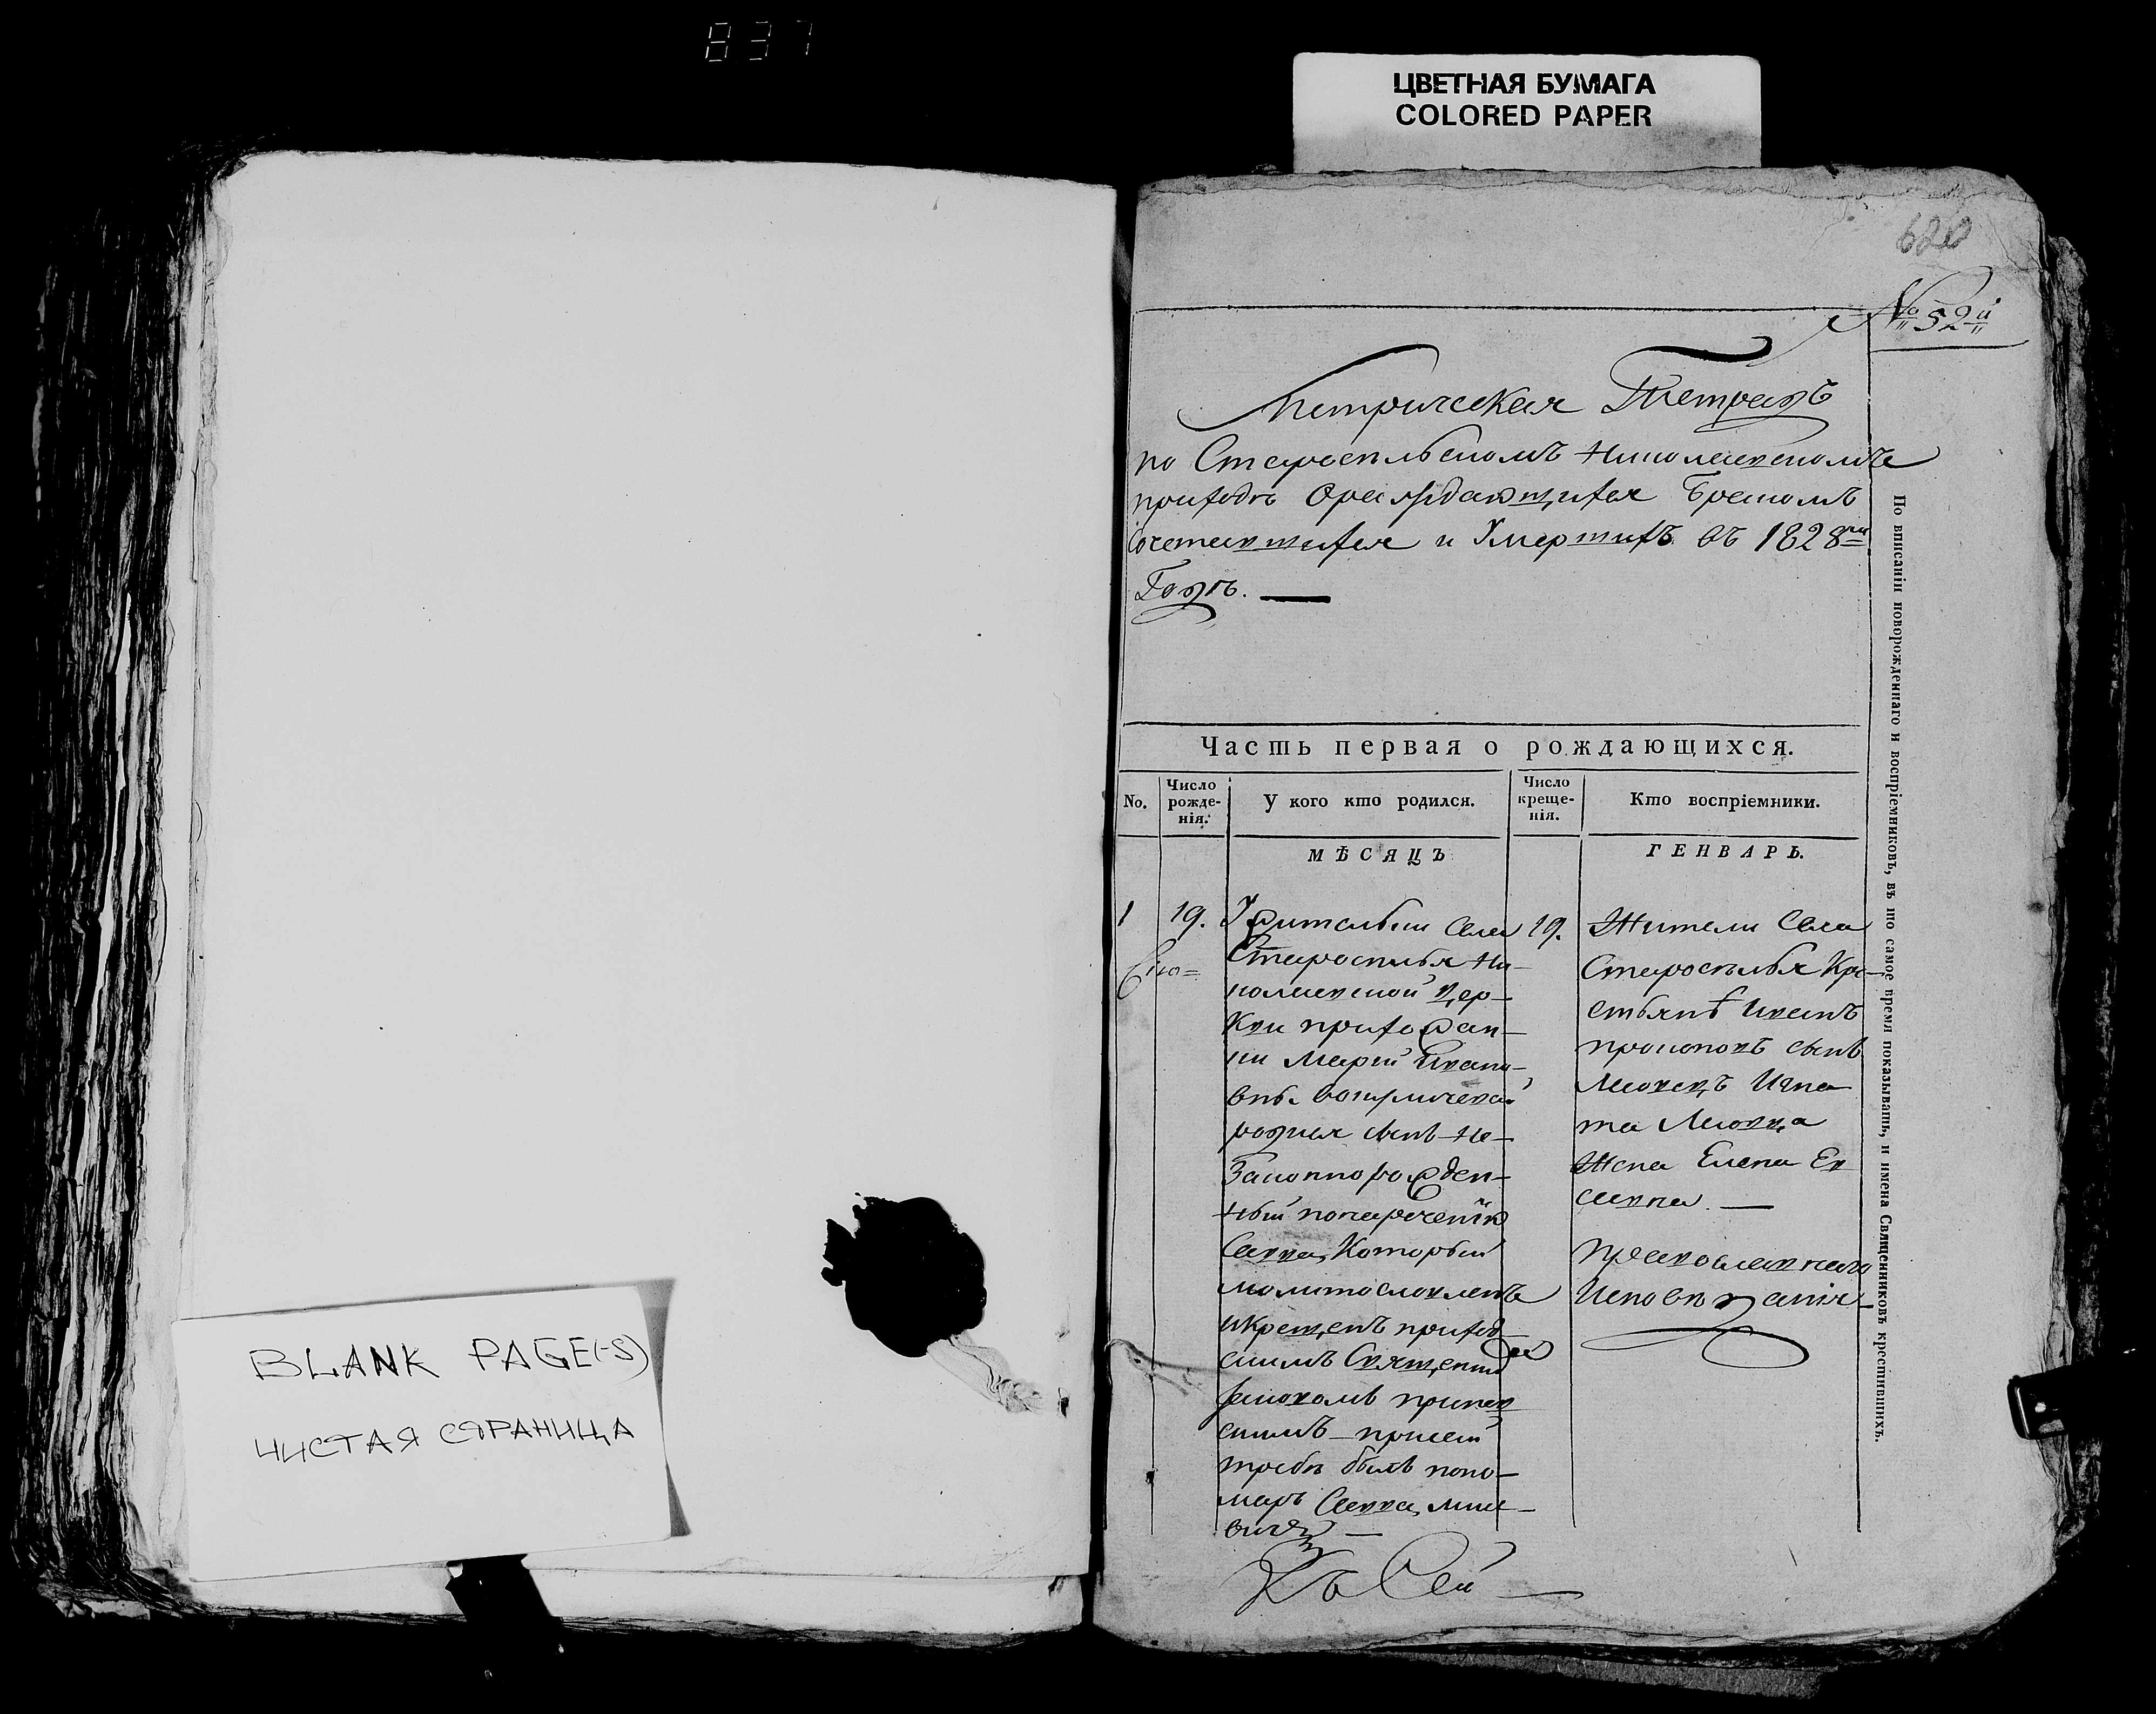 837
ЦВЕТНАЯ БУМАГА
COLORED PAPER
620
№ 52й
Метрическая Тетрадь
по Старосельскомъ Николаевскомъ
приходѣ О раждающихся Бракомъ
Сочетавшихся и Умершихъ въ 1828мъ
Годѣ.
Часть первая о рождающихся.
No.
Число рожде-нія.
У кого кто родился.
Число креще-нія.
Кто воспріемники.
МѢСЯЦЪ
ГЕНВАРЬ.
1
19.
У жительки Села
Староселья Ни-
колаевской Цер-
кви прихожан-
ки Маріи Ивано-
вны
родися сынъ Не-
Законнорожден-
ный понареченію
Савва, Который
молитвословленъ
и крещенъ приход-
скимъ Священно
при сей
требѣ былъ поно-
марь Савва
19.
Жители Села
Староселья Кре-
стьянъ Иванъ
сынъ
Игна
та
Жена Елена Ев
Православнаго
Исповѣданія
Къ Сей
По вписаніи новорожденнаго и воспріемниковъ, въ то самое время показывать, и имена Священниковъ крестившихъ.
BLANK PAGE(-S)
ЧИСТАЯ СТРАНИЦА